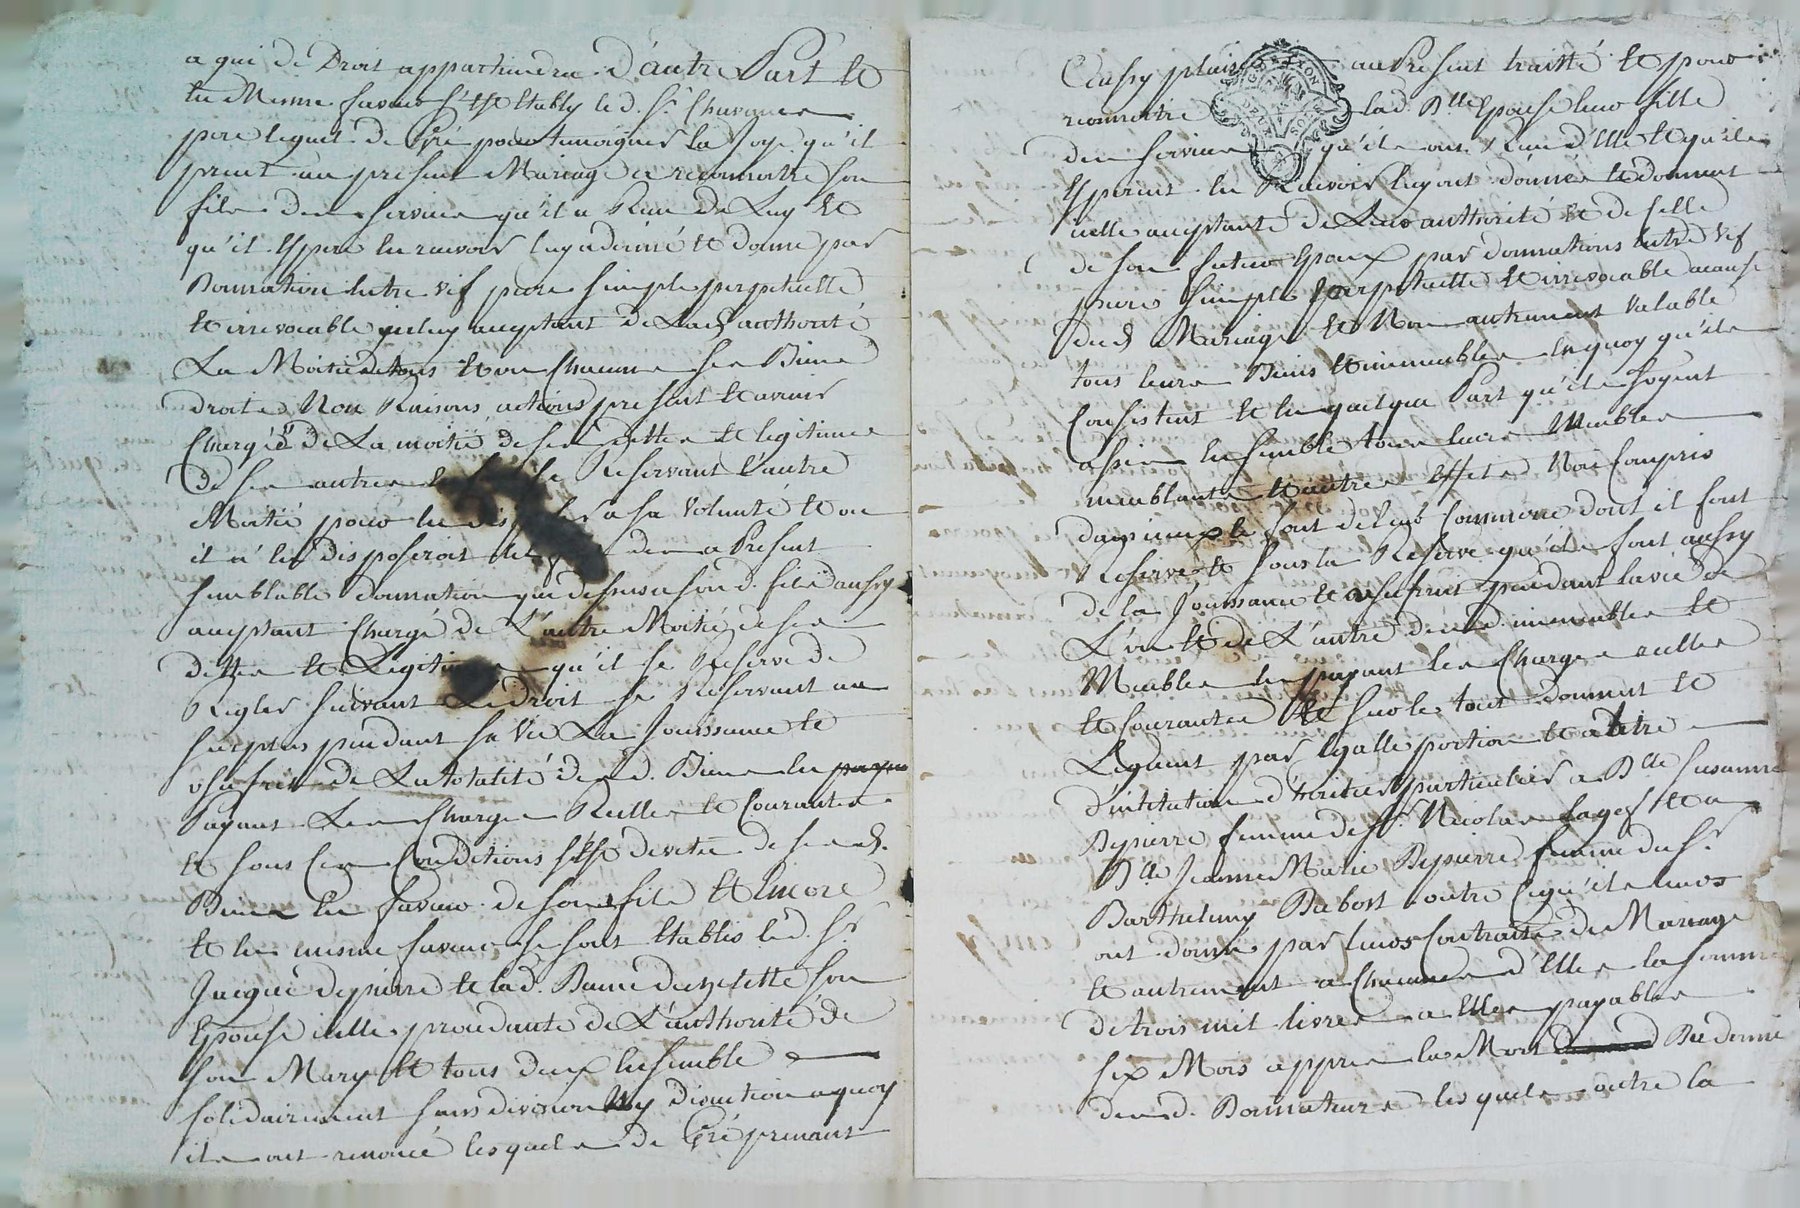 a qui de Droit appartiendra. D'autre Part Et
En Meme faveur S'est Etably led. Sr. Chavanes
pere lequel de Gré pour temoigner la Joye qu'il
prent au present Mariage et reconnoitre son
fils des services qu'il a Reçu De Luy Et
qu'il Espere En recevoir luy a donné Et donne par
Donnation Entre vif pure simple perpetuelle
Et irrevocable iceluy acceptant de Lad. authorité
La Moitié de tous Et un Chacuns ses Biens
droits Nom Raisons actions present Et avenir
Chargé de La moitié de ses dettes Et legitimes
de ses autres se Reservant L'autre
Moitié pour En a sa volonté Et ou
il n'En disposeroit des a Present
semblable donnation que dessus a sond. fils aussy
acceptant Chargé de L'autre Moitié de ses
dettes Et qu'il se Reserve de
Regler suivant Le droit se Reservant au
surplus pendant sa Vie La Jouissance Et
usufruit de La totalité desd. Biens En
Payant Les Charges Reelles Et Courantes
Et sous Ces Conditions s'est devetu de sesd.
Biens En faveur de son fils Et Encore
Et En meme faveur se sont Etablis led. Sr.
Jacque Depierre Et lad. Dame son
Epouse icelle procedante de L'authorité de
son Mary Et tous deux Ensemble
solidairement sans division Ny discution a quoy
ils ont renoncé lesquels de Gré prenant
aussy plaisir au Present traitté Et pour
reconnoitre lad. Dlle Epouse leur fille
des services qu'ils ont Reçu d'Elle Et qu'ils
Esperent En Recevoir luy ont donnés Et donnent
icelle acceptante de Leur authorité Et de Celle
de son futur Epoux par donnations Entre Vif
pure simple Perpetuelle Et irrevocable a cause
dud. Mariage Et Non autrement Valable
tous leurs Biens Et immeubles En quoy qu'ils
Consistent Et En quelque Part qu'ils soyent
assis Ensemble tous leurs Meubles
meublants Et autres Effets Non Compris
dans iceux le font de leur Commerce dont il font
Reserve Et sous la Reserve qu'ils font aussy
de la Jouissance Et usufruit pendant la vie de
L'un Et de L'autre desd. immeubles Et
Meubles En payant les Charges reelles
Et Courantes Et sur le tout donnent Et
Leguent par Egalle portion Et a titre
d'institution d'heritier particulier a Dlle Susanne
Depierre femme de Sr. Nicolas Lager Et a
Dlle Jeanne Marie Depierre femme du Sr.
Barthelemy Dubost outre Ce qu'ils leurs
ont donné par leurs Contracts de Mariage
Et autrement a Chacune d'Elles la somme
de trois mil livres a Elles payables
six Mois appres la Mort Du dernier
desd. Donnateurs lesquels outre la